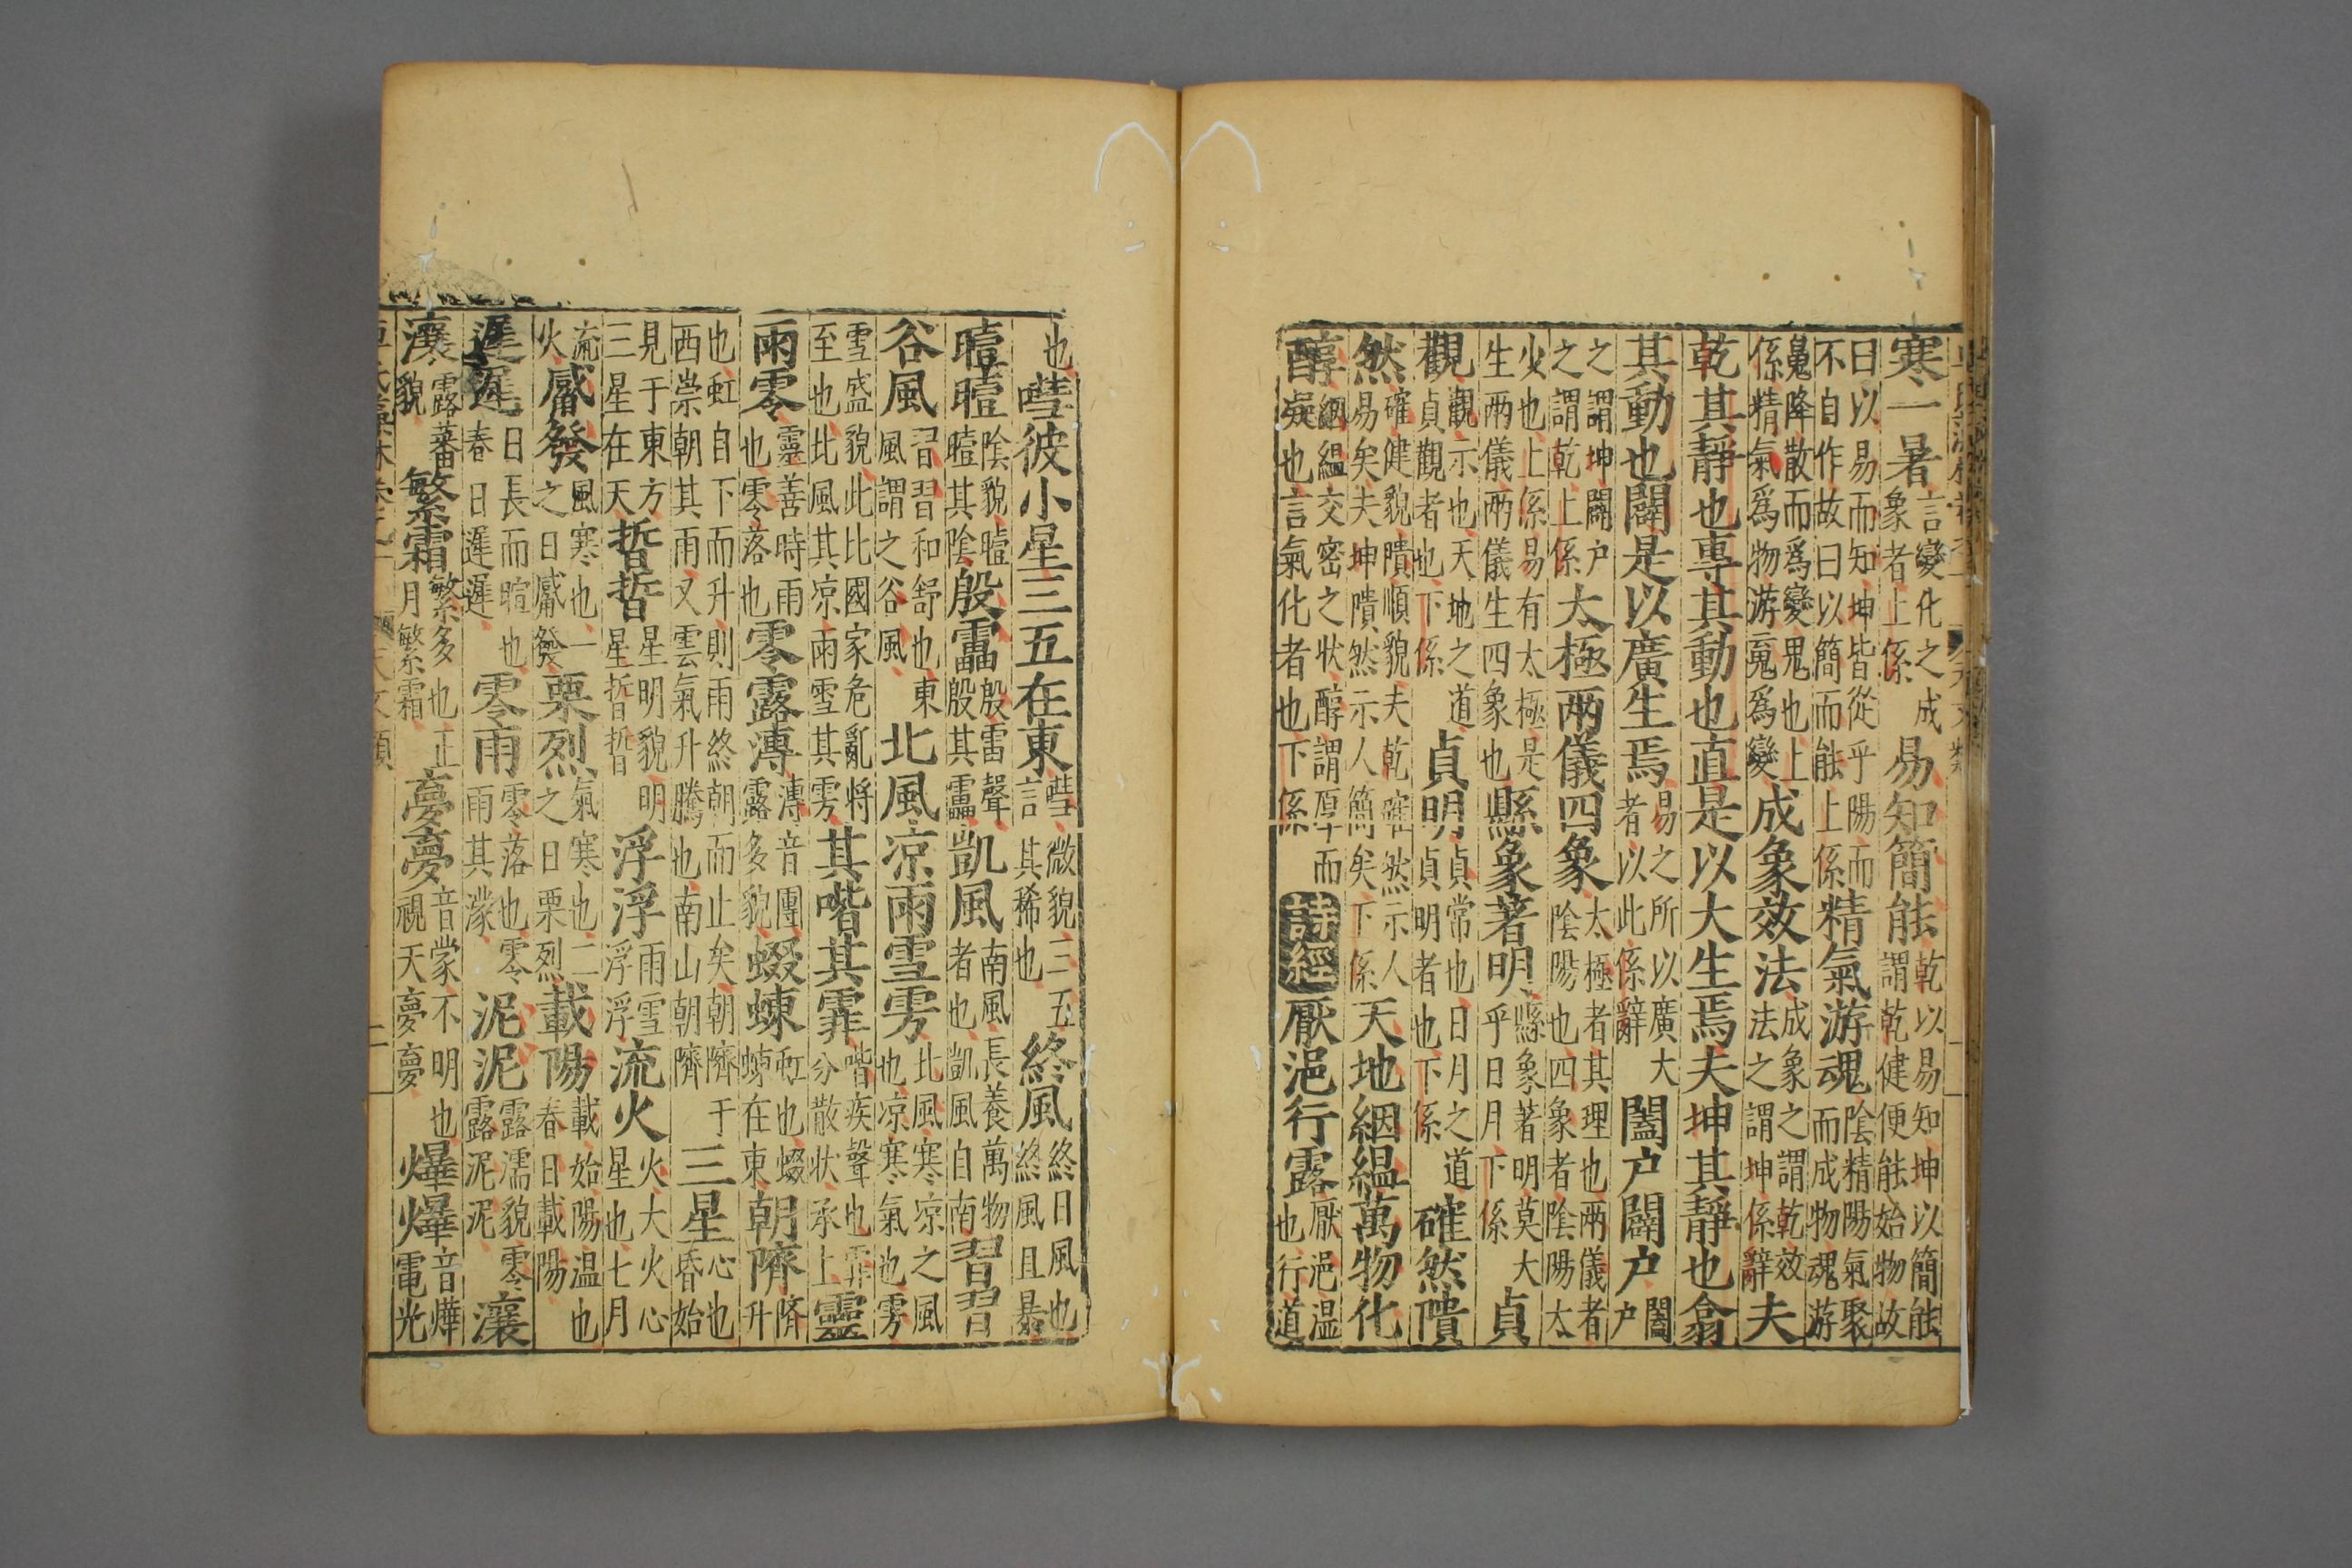 寒一暑言變化之成象者上係易知簡能乾以易知坤以簡能謂乾健便能始物故
曰以易而知坤皆從乎陽而不自作故曰以簡而能上係精氣游魂陰精陽氣聚而成物魂游
魄降散而爲變鬼也上係精氣爲物游䰟爲變成象效法成象之謂乾效法之謂坤係辭夫
乾其靜也專其動也直是以大生焉夫坤其靜也翕
其動也闢是以廣生焉易之所以廣大者以此係辭闔户闢户闔户
之謂坤闢户之謂乾上係太極兩儀四象太極者其理也兩儀者陰陽也四象者陰陽太
少也上係易有太極是生兩儀兩儀生四象也縣象著明縣象著明莫大乎日月下係貞
觀觀示也天地之道貞觀者也下係貞明貞常也日月之道貞明者也下係確然隤
然確健貌隤順貌夫乾確然示人易矣夫坤隤然示人簡矣下係天地絪緼萬物化
醇絪緼交密之状醇謂厚而凝也言氣化者也下係詩經厭浥行露厭浥温也行道
也嘒彼小星三五在東嘒微貌三五言其稀也終風終日風也終風且暴
曀曀陰貌曀曀其陰殷靁殷雷聲殷其靁凱風南風長養萬物者也凱風自南習習
谷風習習和舒也東風謂之谷風北風凉雨雪雱北風寒凉之風也凉寒氣也雱
雪盛貌此比國家危亂将至也北風其凉雨雪其雱其喈其霏喈疾聲也霏分散状承上靈
雨零靈善時雨也零落也零露漙漙音團露多貌蝃蝀虹也蝃蝀在東朝隮隮升
也虹自下而升則雨終朝而止矣朝隮于西崇朝其雨又雲氣升騰也南山朝隮三星心也昏始
見于東方三星在天晢晢星明貌明星晢晢浮浮雨雪浮浮流火火大火心星也七月
流火觱發風寒也一之日觱發栗烈氣寒也二之日栗烈載陽載始陽温也春日載陽
遲遲日長而暄也春日遲遲零雨零落也零雨其濛泥泥露濡貌零露泥泥瀼
瀼露蕃貌繁霜繁多也正月繁霜夢夢音蒙不明也視天夢夢爗爗音燁電光